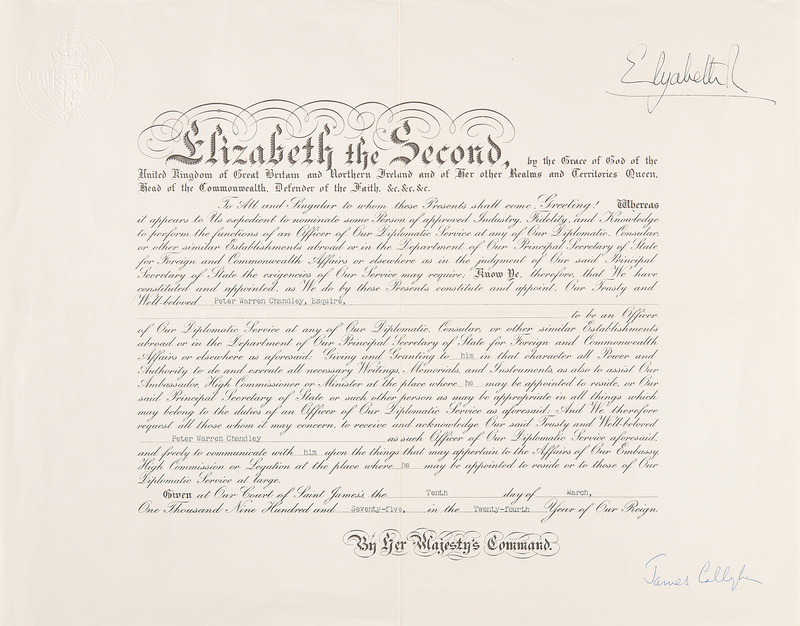 Elizabeth R
Elizabeth the Second, by the Grace of God of the
United Kingdom of Great Britain and Northern Ireland and of Her other Realms and Territories Queen,
Head of the Commonwealth, Defender of the Faith, &c. &c. &c.
To All and Singular to whom these Presents shall come, Greeting! Whereas
it appears to Us expedient to nominate some Person of approved Industry, Fidelity, and Knowledge
to perform the functions of an Officer of Our Diplomatic Service at any of Our Diplomatic, Consular,
or other similar Establishments abroad or in the Department of Our Principal Secretary of State
for Foreign and Commonwealth Affairs or elsewhere as in the judgment of Our said Principal
Secretary of State the exigencies of Our Service may require; Know Ye, therefore, that We have
constituted and appointed, as We do by these Presents constitute and appoint, Our Trusty and
Well-beloved Peter Warren Chandley, Esquire,
to be an Officer
of Our Diplomatic Service at any of Our Diplomatic, Consular, or other similar Establishments
abroad or in the Department of Our Principal Secretary of State for Foreign and Commonwealth
Affairs or elsewhere as aforesaid; Giving and Granting to him in that character all Power and
Authority to do and execute all necessary Writings, Memorials, and Instruments, as also to assist Our
Ambassador, High Commissioner or Minister at the place where he may be appointed to reside, or Our
said Principal Secretary of State or such other person as may be appropriate in all things which
may belong to the duties of an Officer of Our Diplomatic Service as aforesaid; And We therefore
request all those whom it may concern, to receive and acknowledge Our said Trusty and Well-beloved
Peter Warren Chandley as such Officer of Our Diplomatic Service aforesaid,
and freely to communicate with him upon the things that may appertain to the Affairs of Our Embassy,
High Commission or Legation at the place where he may be appointed to reside or to those of Our
Diplomatic Service at large.
Given at Our Court of Saint James's, the Tenth day of March,
One Thousand Nine Hundred and Seventy-five, in the Twenty-fourth Year of Our Reign.
By Her Majesty's Command.
James Callaghan